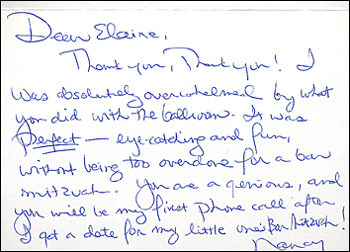 Dear Elaine,
Thank you, Thank you! I
was absolutely overwhelmed by what
you did with the ballroom. It was
perfect — eye-catching and fun,
without being too overdone for a bar
mitzvah. You are a genious, and
you will be my first phone call after
I get a date for my little one's Bar Mitzvah!
Nancy